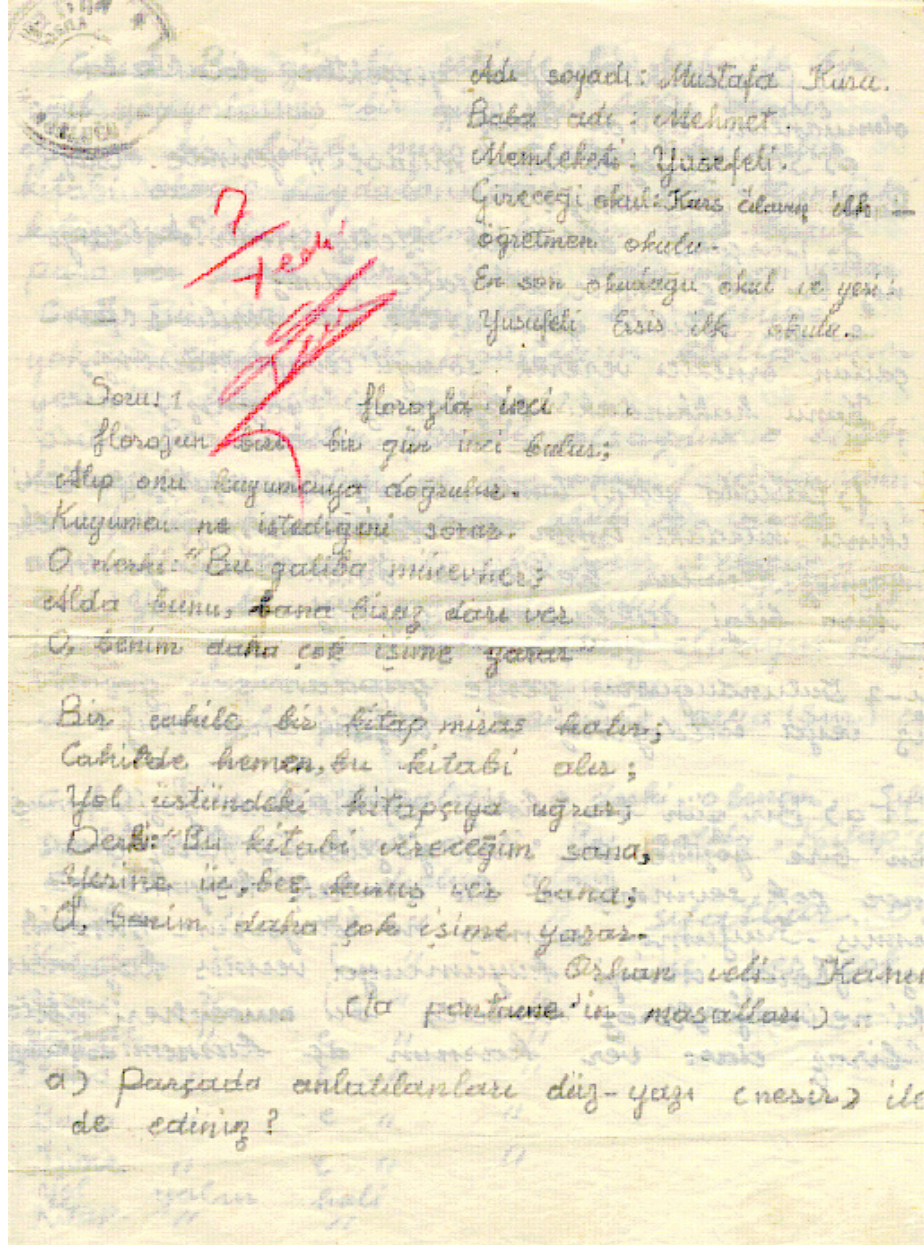 Adı soyadı: Mustafa Kura.
Baba adı: Mehmet.
Memleketi: Yusefeli.
Gireceği okul: Kars cılavuz ilk-
öğretmen okulu.
En son okuduğu okul ve yeri:
Yusufeli Ersis ilk okulu.
7
Yedi
Soru: 1 Horozla inci
Horozun biri bir gün inci bulur;
Alıp onu kuyumcuya doğrulur.
Kuyumcu ne istediğini sorar.
O derki: "Bu galiba mücevher;
Alda bunu, bana biraz darı ver
O, benim daha çok işime yarar"
Bir cahile bir kitap miras kalır;
Cahilde hemen, bu kitabi alır;
Yol üstündeki kitapçıya uğrar;
Derki: "Bu kitabi vereceğim sana,
Yerine üç, beş kuruş ver bana;
O, benim daha çok işime yarar.
Orhan veli Kanı
(la fontaine'in masalları)
a) Parçada anlatılanları düz-yazı (nesir) ile
de ediniz?